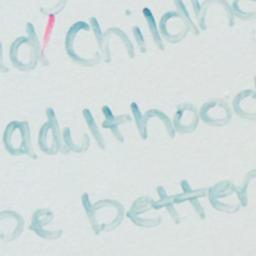 childho
adulthood
be better